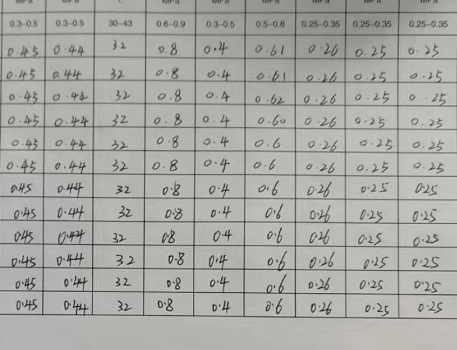 0.3-0.5 0.3-0.5 30-43 0.6-0.9 0.3-0.5 0.5-0.6 0.25-0.35 0.25-0.35 0.25-0.35
0.45 0.44 32 0.8 0.4 0.61 0.26 0.25 0.25
0.45 0.44 32 0.8 0.4 0.61 0.26 0.25 0.25
0.45 0.44 32 0.8 0.4 0.62 0.26 0.25 0.25
0.45 0.44 32 0.8 0.4 0.60 0.26 0.25 0.25
0.45 0.44 32 0.8 0.4 0.6 0.26 0.25 0.25
0.45 0.44 32 0.8 0.4 0.6 0.26 0.25 0.25
0.45 0.44 32 0.8 0.4 0.6 0.26 0.25 0.25
0.45 0.44 32 0.8 0.4 0.6 0.26 0.25 0.25
0.45 0.44 32 0.8 0.4 0.6 0.26 0.25 0.25
0.45 0.44 32 0.8 0.4 0.6 0.26 0.25 0.25
0.45 0.44 32 0.8 0.4 0.6 0.26 0.25 0.25
0.45 0.44 32 0.8 0.4 0.6 0.26 0.25 0.25